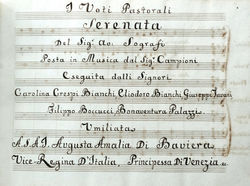 I Voti Pastorali
Serenata
Del Sigr. Av. Sografi
Posta in Musica dal Sigr. Campioni
Eseguita dalli Signori
Carolina Crespi Bianchi, Eliodoro Bianchi, Giuseppe
Filippo Boccucci Bonaventura Palazzi.
Umiliata
A S.A.I. Augusta Amalia Di Baviera
Vice-Regina D'Italia, Principessa Di Venezia